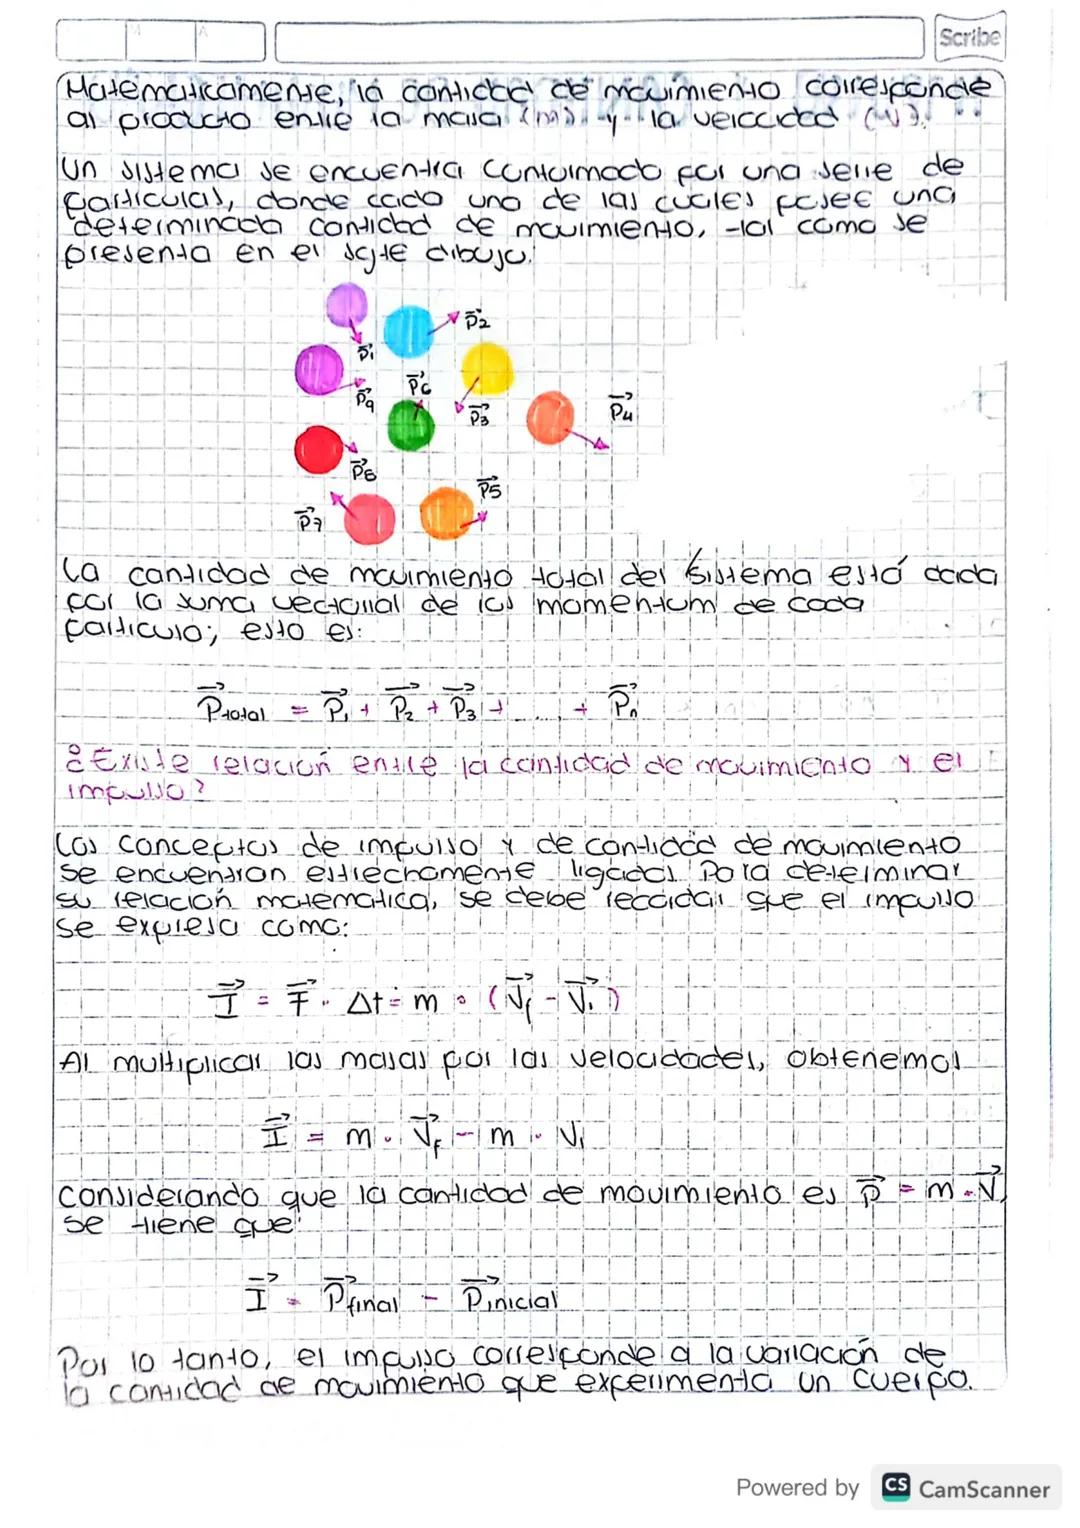 Scribe
Matemáticamente, la cantidad de movimiento corresponde
al producto entre la masa (m) y la velocidad (v).
Un sistema se encuentra conformado por una serie de
partículas, donde cada una de las cuales posee una
determinada cantidad de movimiento, tal como se
presenta en el sgte dibujo.
P⃗1
P⃗2
P⃗9
P⃗6
P⃗3
P⃗4
P⃗8
P⃗5
P⃗7
La cantidad de movimiento total del sistema está dada
por la suma vectorial de los momentum de cada
partícula; esto es:
P⃗total = P⃗1 + P⃗2 + P⃗3 + ..... + P⃗n
¿Existe relación entre la cantidad de movimiento y el
impulso?
Los conceptos de impulso y de cantidad de movimiento
se encuentran estrechamente ligados. Para determinar
su relación matemática, se debe recordar que el impulso
se expresa como:
I⃗ = F⃗ · Δt = m · (V⃗f - V⃗i)
Al multiplicar las masas por las velocidades, obtenemos
I⃗ = m · V⃗f - m · Vi
Considerando que la cantidad de movimiento es P⃗ = m · V⃗,
se tiene que:
I⃗ = P⃗final - P⃗inicial
Por lo tanto, el impulso corresponde a la variación de
la cantidad de movimiento que experimenta un cuerpo.
Powered by CS CamScanner